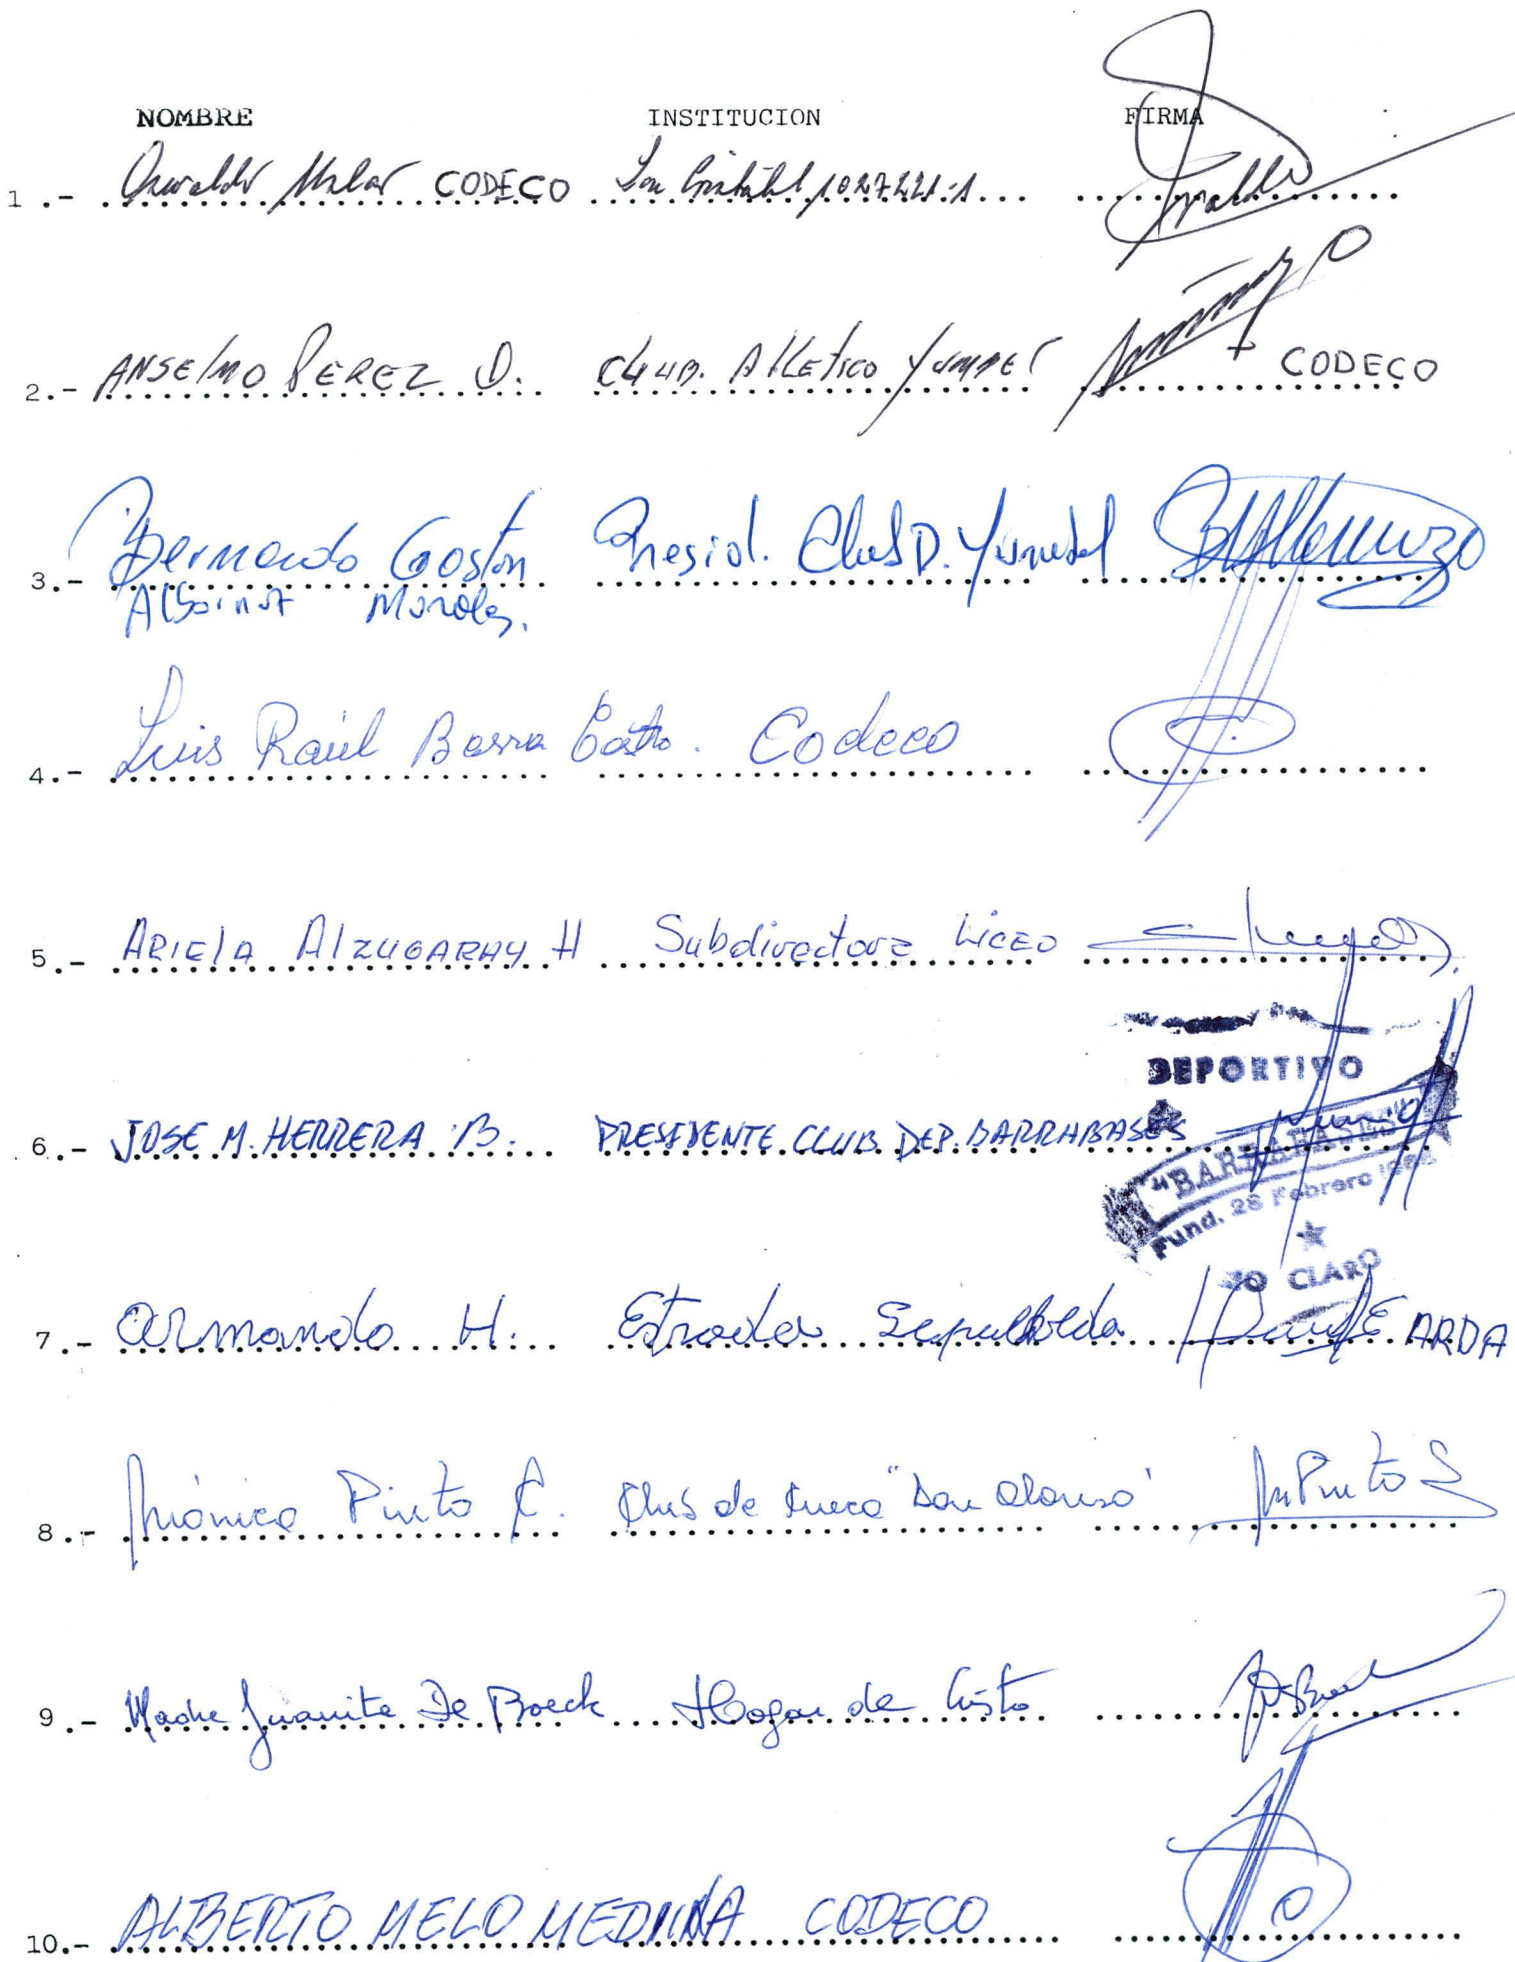 NOMBRE INSTITUCION FIRMA
1.- Oswaldo CODECO San Cristóbal
2.- ANSELMO PEREZ D. CLUB. Atletico Yumbel + CODECO
3.- Bernardo Gaston Presid. Club D. Yumbel
Albornoz Morales.
4.- Luis Raúl Barra Castro. Codeco
5.- ARIELA AlZUGARAY H Subdirectora LICEO
DEPORTIVO
6.- JOSE M. HERRERA B. PRESIDENTE CLUB DEP. BARRABASES
"BARRABASES"
Fund. 28 Febrero
IO CLARO
7.- Armando H. Estrada Sepulveda ARDA
8.- Mónica Pinto C. Club de Cueca "Don Alonso" M Pinto
9.- Madre Juanita De Boeck Hogar de Cristo
10.- ALBERTO MELO MEDINA CODECO